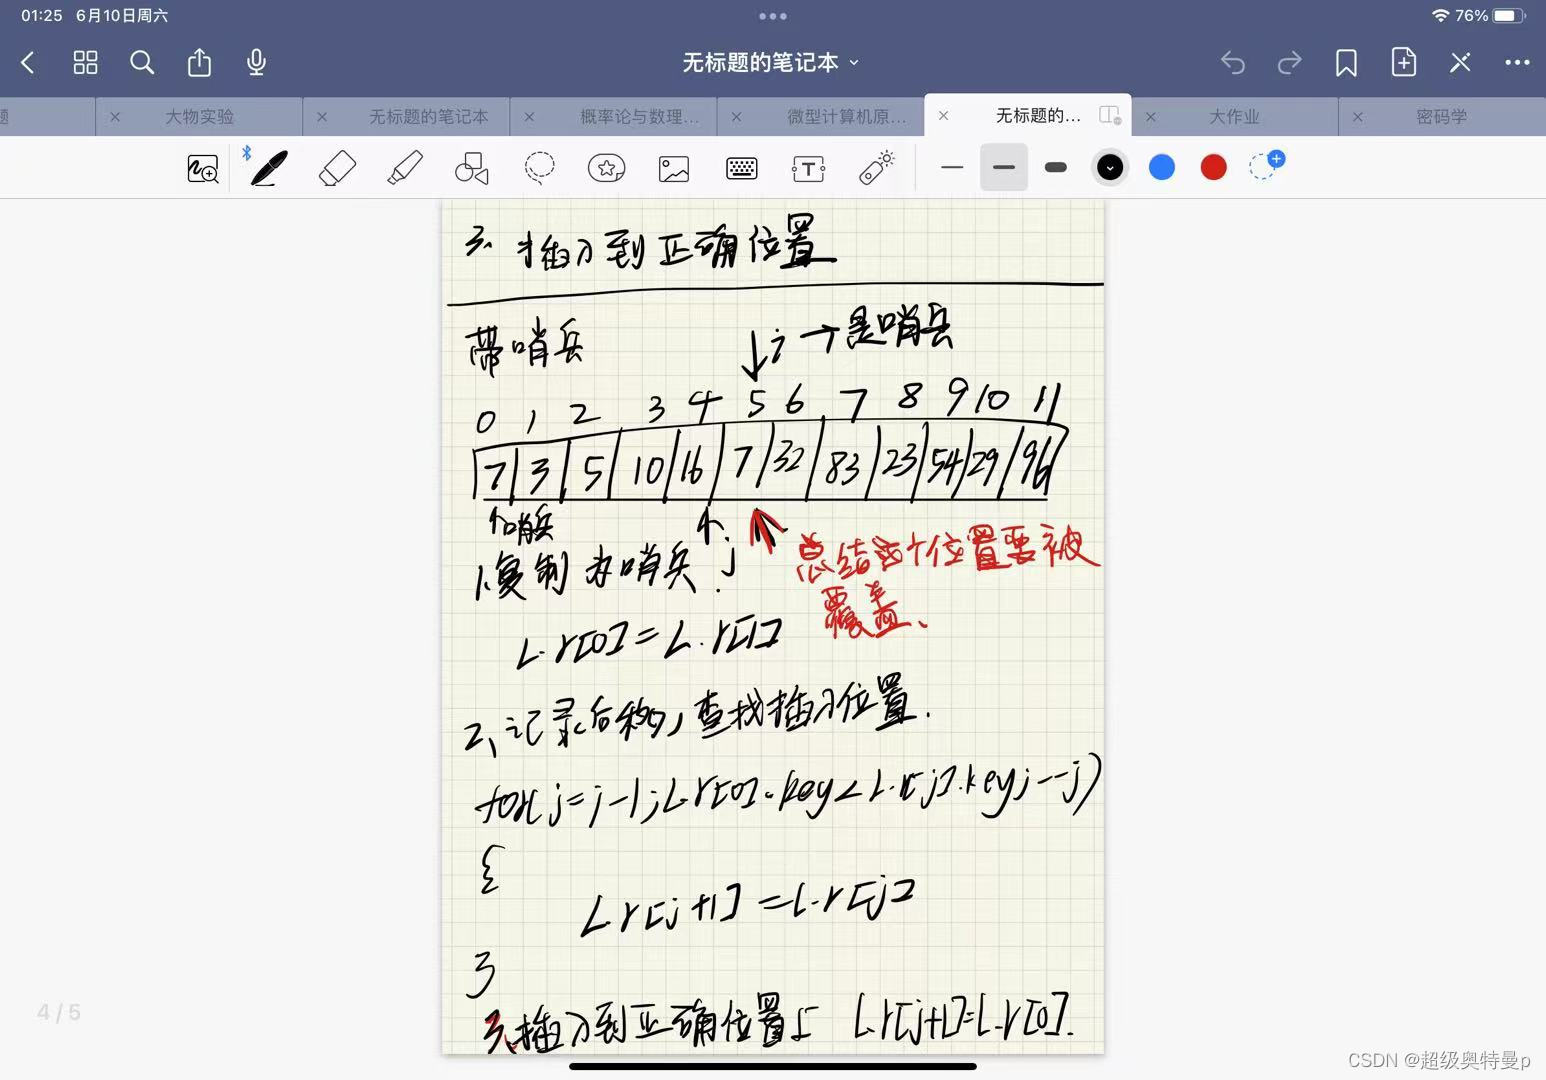 01:25 6月10日周六
76%
无标题的笔记本
题
大物实验
无标题的笔记本
概率论与数理...
微型计算机原...
无标题的...
大作业
密码学
3. 插入到正确位置
带哨兵
i → 是哨兵
0 1 2 3 4 5 6 7 8 9 10 11
7 3 5 10 16 7 32 83 23 54 29 96
哨兵
j
1、复制为哨兵.
总结这个位置要被
覆盖、
L.r[0]=L.r[i]
2、记录后移, 查找插入位置.
for(j=i-1;L.r[0].key<L.r[j].key;--j)
{
L.r[j+1]=L.r[j]
}
3、插入到正确位置 L.r[j+1]=L.r[0].
4 / 5
CSDN @超级奥特曼p